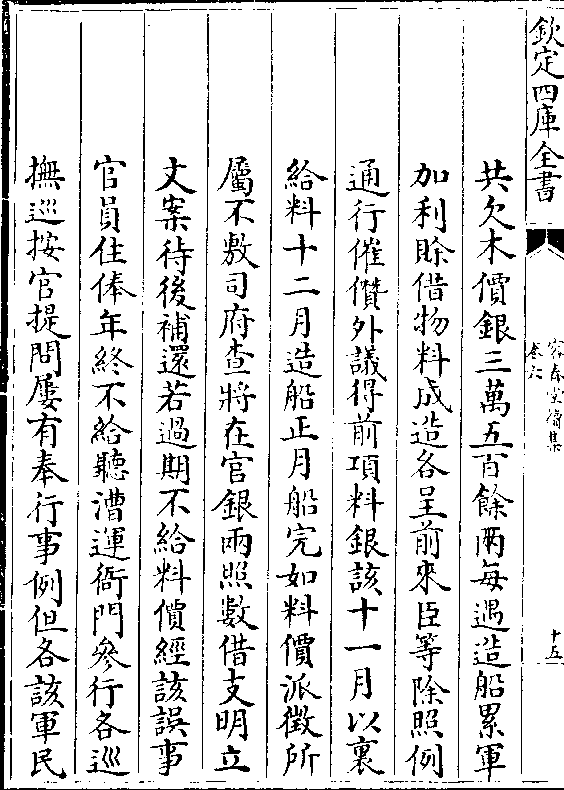 欽定四庫全書
容春堂續集
卷六
十五
共欠木價銀三萬五百餘兩每遇造船累軍
加利賒借物料成造各呈前來臣等除照例
通行催儹外議得前項料銀該十一月以裏
給料十二月造船正月船完如料價派徵所
屬不敷司府查將在官銀兩照數借支明立
文案待後補還若過期不給料價經該誤事
官員住俸年終不給聽漕運衙門參行各巡
撫巡按官提問屢有奉行事例但各該軍民